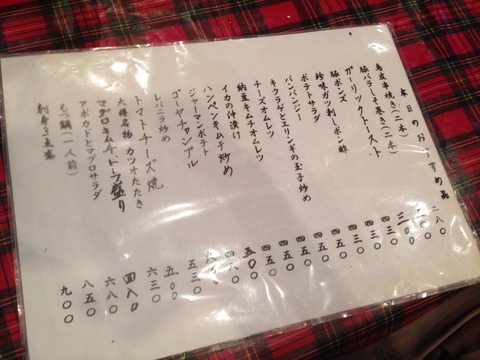 本日のおすすめ品
鳥皮串焼き(二本) 二八〇
豚バラしそ巻き(二本) 三〇〇
ガーリックトースト 三〇〇
豚ポンズ 四三〇
珍味ガツ刺しポン酢 四三〇
ポテトサラダ 四五〇
バンバンジー 四五〇
キクラゲとエリンギの玉子炒め 四五〇
チーズオムレツ 四五〇
納豆キムチオムレツ 四五〇
イカの沖漬け 四五〇
ハンペンキムチ炒め 五〇〇
ジャーマンポテト 四八〇
ゴーヤチャンプル
レバニラ炒め 五三〇
トマトチーズ焼 五〇〇
大樽名物 カツオたたき 六三〇
マグロキムチトーフ盛り 四八〇
アボカドとマグロサラダ 六八〇
もつ鍋(一人前) 八五〇
刺身3点盛 九〇〇